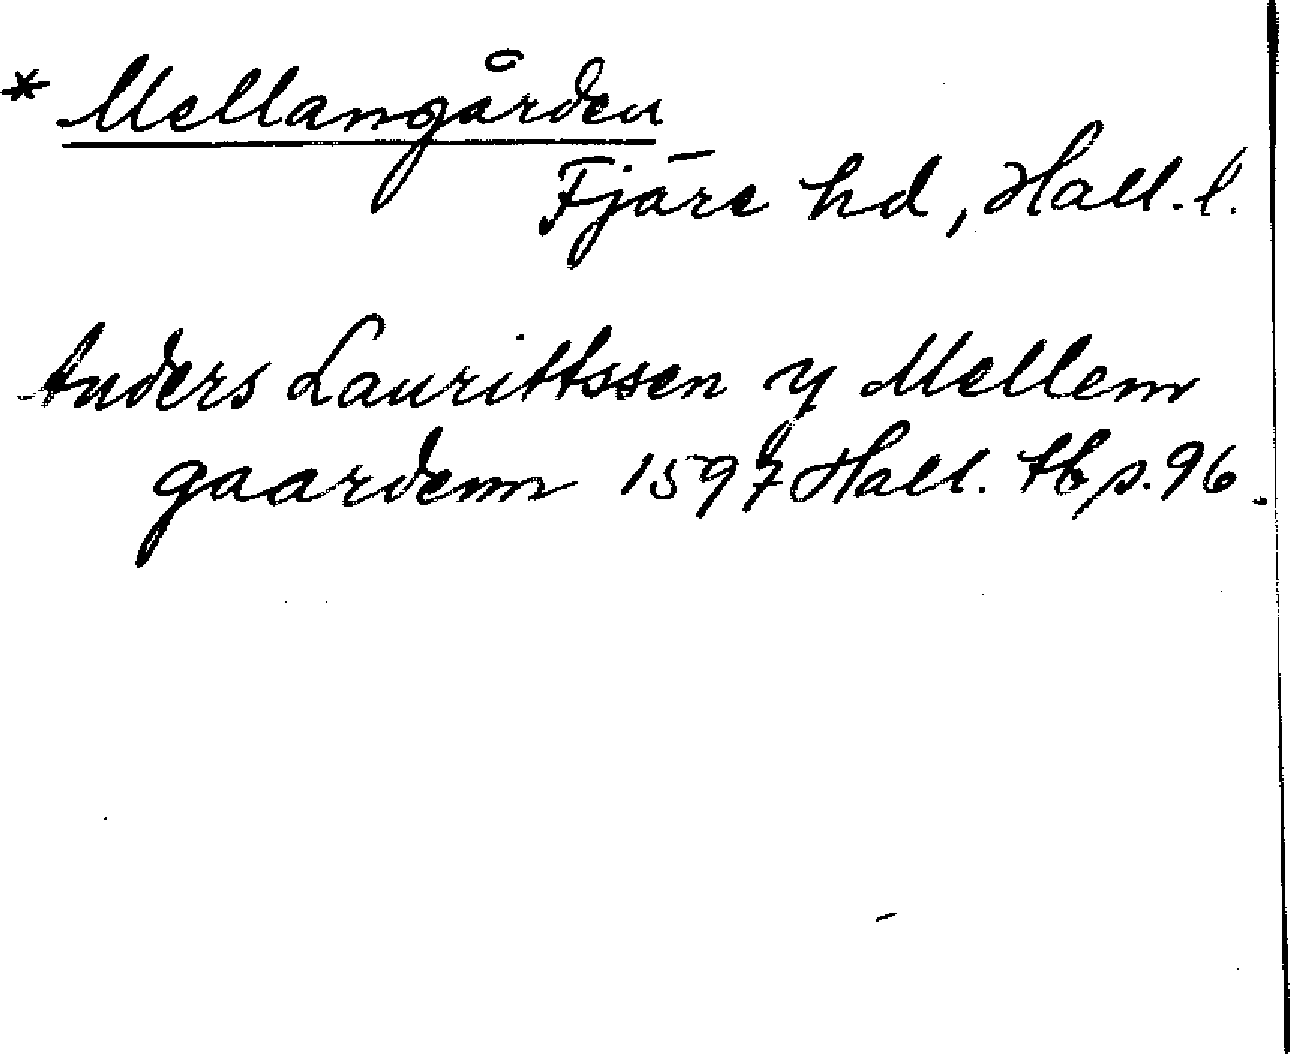 * Mellangården
Fjäre hd, Hall. l.
Anders Laurittssen y Mellem
gaardenn 1597 Hall. tb s. 96.